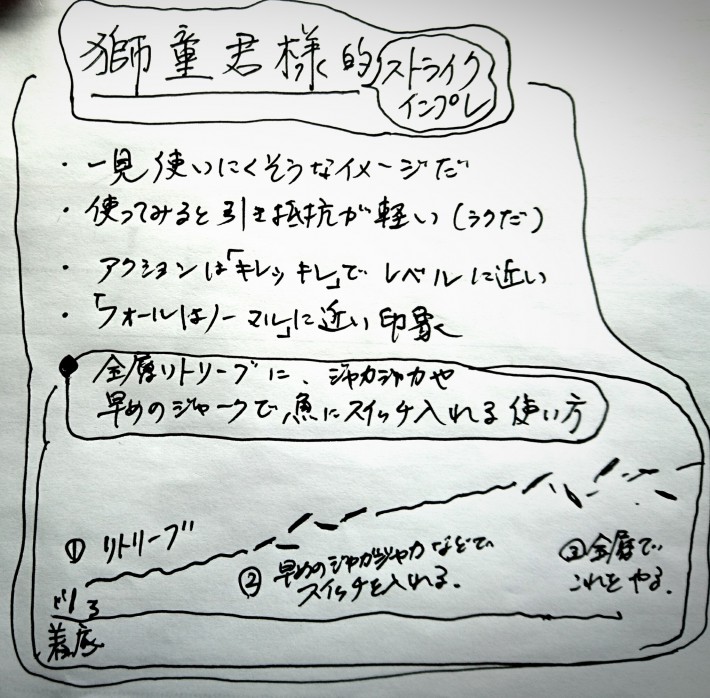 獅童君様的
ストライク
インプレ
・一見使いにくそうなイメージだ
・使ってみると引き抵抗が軽い(ラクだ)
・アクションは「キレッキレ」で レベルに近い
・「フォールはノーマル」に近い印象
● 全層リトリーブに、ジャカジャカや
早めのジャークで魚にスイッチ入れる使い方
① リトリーブ
② 早めのジャカジャカなどで
スイッチを入れる.
③ 全層で
これをやる.
着底